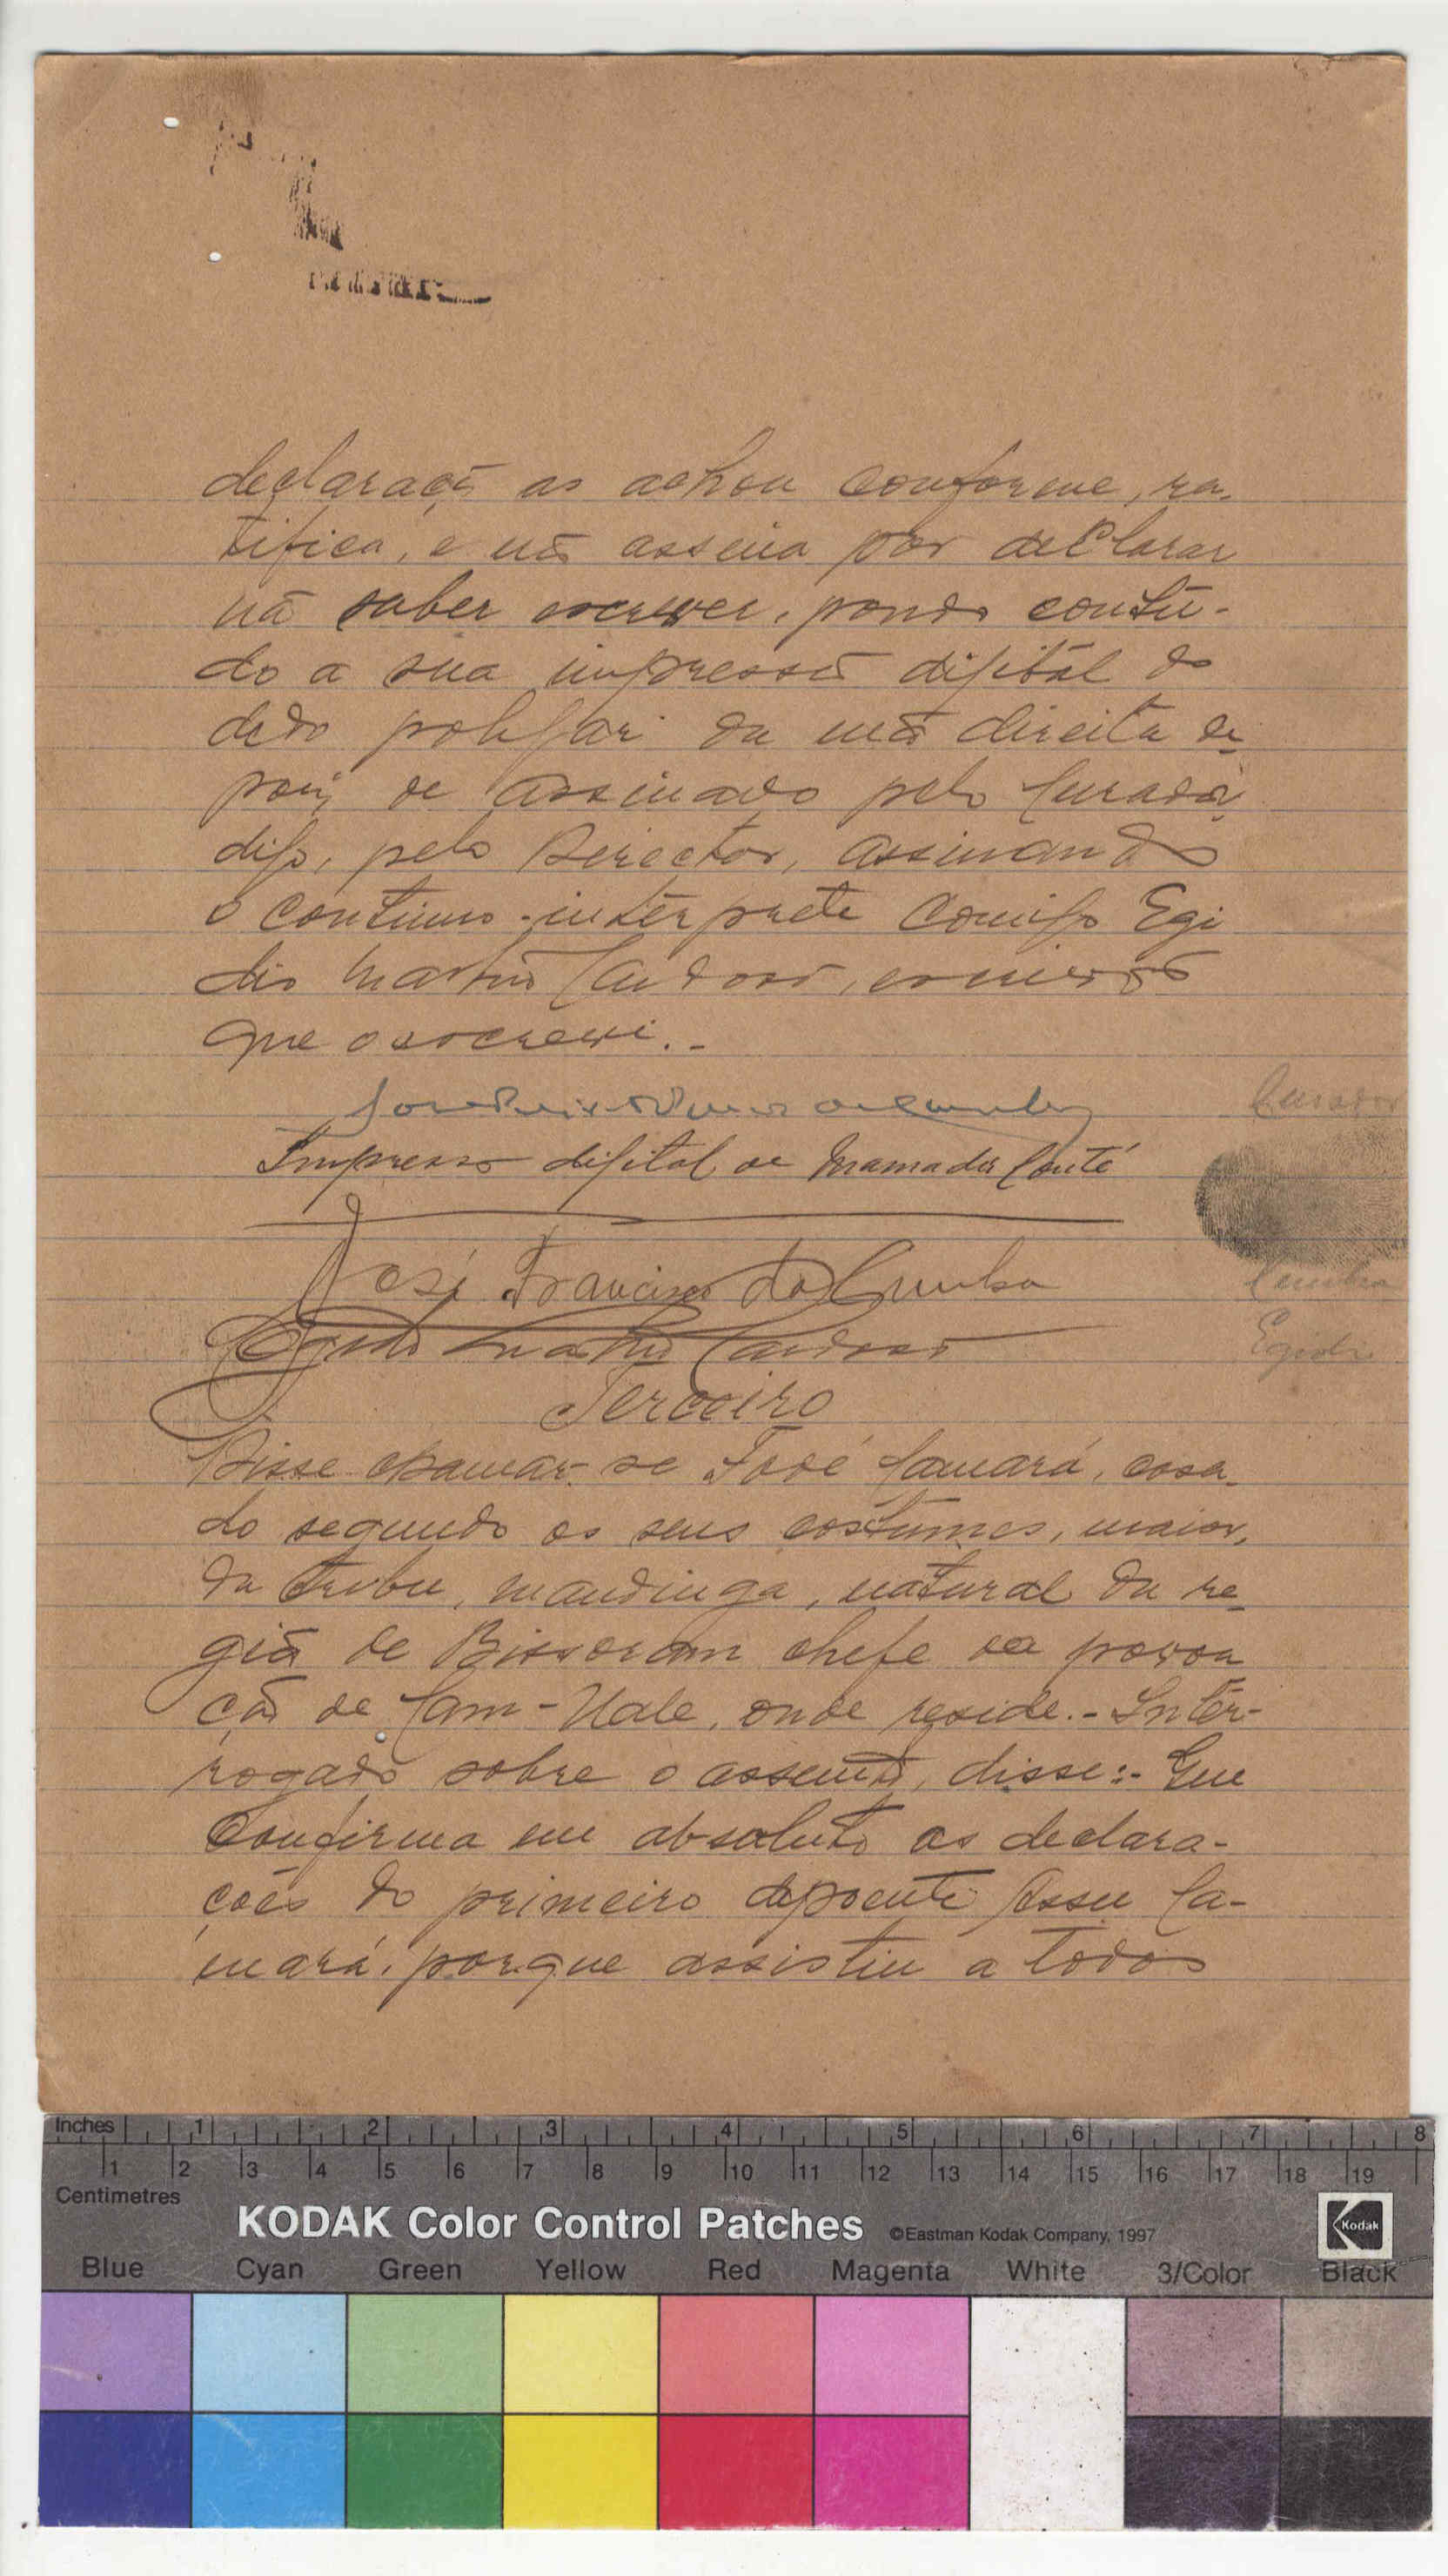 declaraçõ, as achou conforme, ra-
tifica, e nã assina por declarar
nã saber escrever, pondo contu-
do a sua impressã digital do
dedo polegar da mã direita de-
pois de assinado pelo Curador
digo, pelo Director, assinando
o contínuo-intérprete comigo Egi
dio Martins Cardoso,
que o escrevi.-
Curador
Impressão digital de Mamadú Conté
José Francisco da Cunha
Cunha
Egidio Martins Cardoso
Egidio
Terceiro
Disse chamar-se José Camará, casa-
do segundo os seus costumes, maior,
da tribu, mandinga, natural da re-
giã de Bissoram chefe da povoa
çã de Cam-Uale, onde reside.- Inter-
rogado sobre o assunto, disse:- Que
confirma em absoluto as declara-
ções do primeiro depoente Assu Ca-
mará, porque assistiu a todos
Inches 1 2 3 4 5 6 7 8
1 2 3 4 5 6 7 8 9 10 11 12 13 14 15 16 17 18 19
Centimetres
KODAK Color Control Patches ©Eastman Kodak Company, 1997 Kodak
Blue Cyan Green Yellow Red Magenta White 3/Color Black